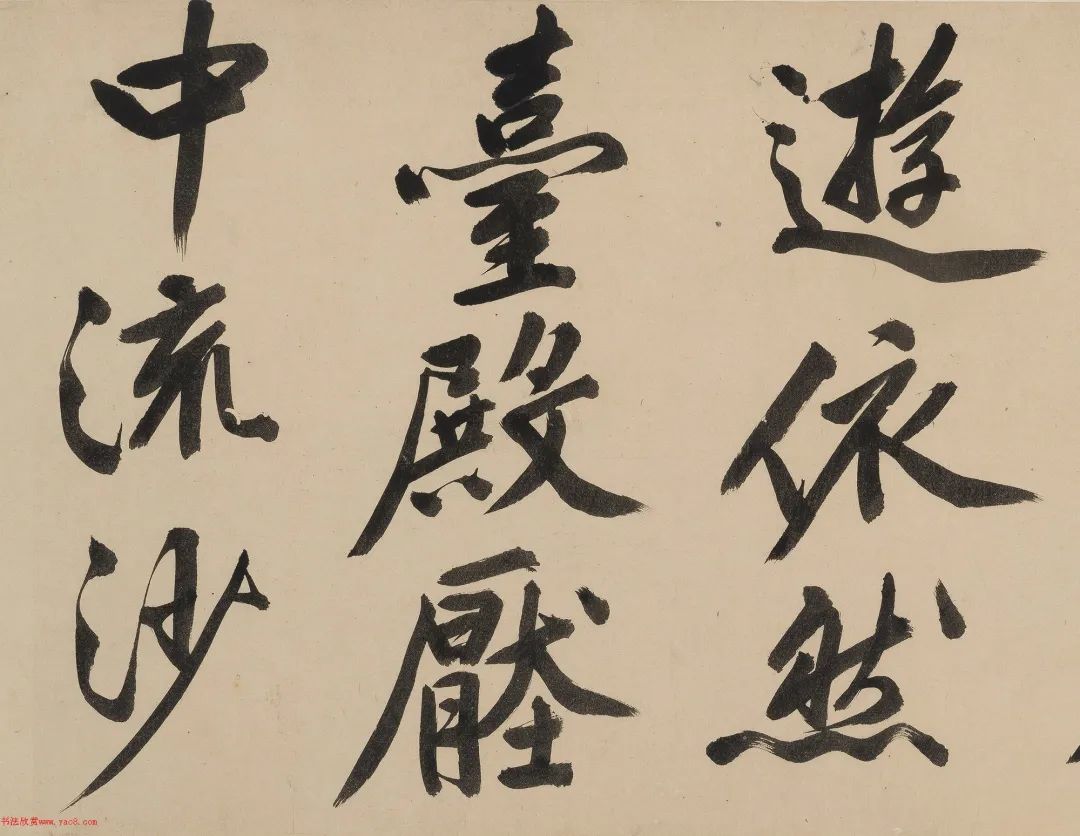 遊依然
臺殿壓
中流沙
书法欣赏www.yac8.com